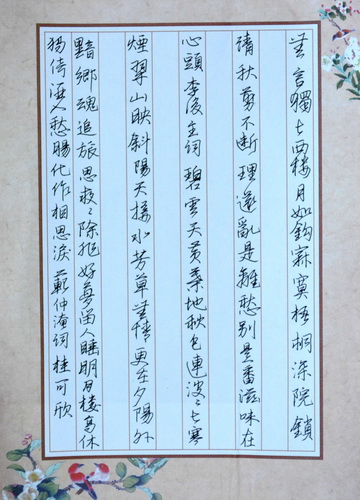 無言獨上西樓月如鈎寂寞梧桐深院鎖
清秋剪不斷理還亂是離愁別是番滋味在
心頭李後主詞碧雲天黃葉地秋色連波々上寒
煙翠山映斜陽天接水芳草無情更在夕陽外
黯鄉魂追旅思夜々除非好夢留人睡明月樓高休
獨倚酒入愁腸化作相思淚範仲淹詞桂可欣